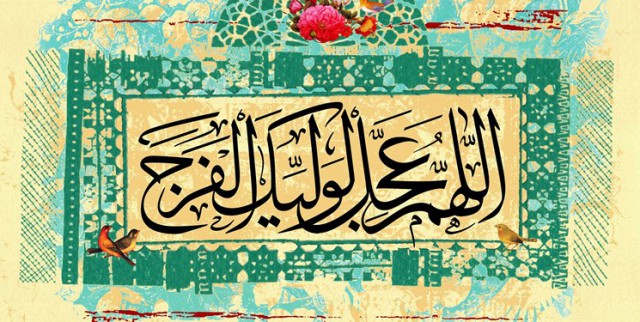 اللَّهُمَّ عَجِّل لِوَلِيِّكَ الْفَرَجَ